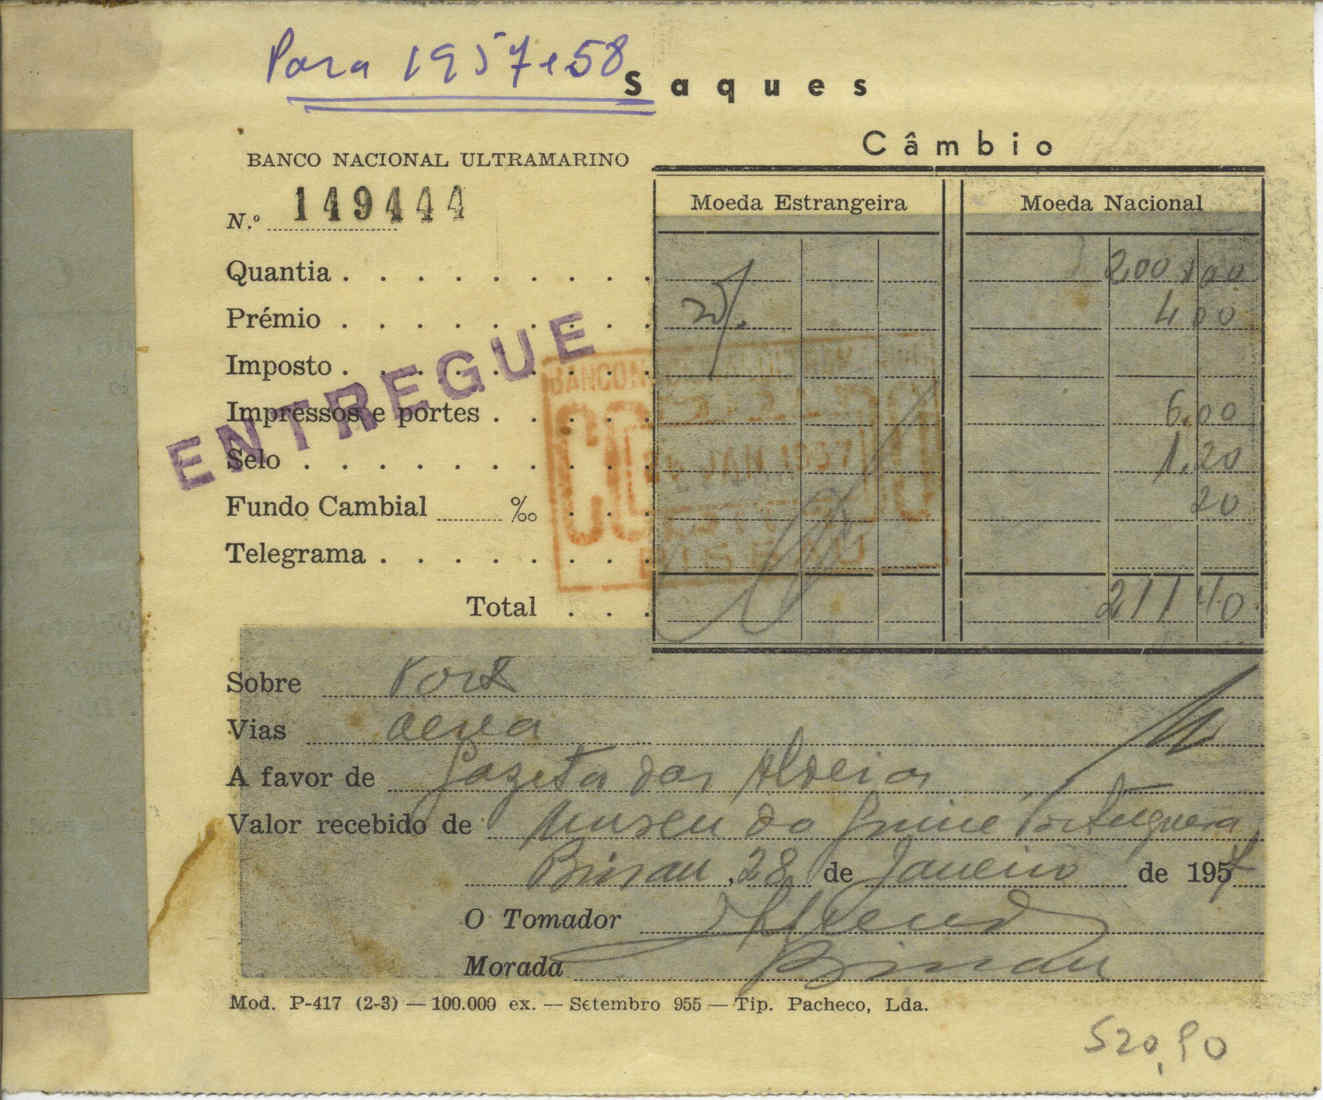 Para 1957 e 58
Saques
Câmbio
BANCO NACIONAL ULTRAMARINO
N.º 149444
Moeda Estrangeira Moeda Nacional
Quantia 200 00
Prémio 4 00
Imposto
Impressos e portes 6.00
Selo 1.20
Fundo Cambial ‰ 20
Telegrama
Total 211 40
ENTREGUE
BISSAU
Sobre Port
Vias aerea
A favor de Gazeta das Aldeias
Valor recebido de Museu da Guiné Portuguesa
Bissau, 28 de Janeiro de 1957
O Tomador
Morada Bissau
Mod. P-417 (2-3) — 100.000 ex. — Setembro 955 — Tip. Pacheco, Lda.
520,90